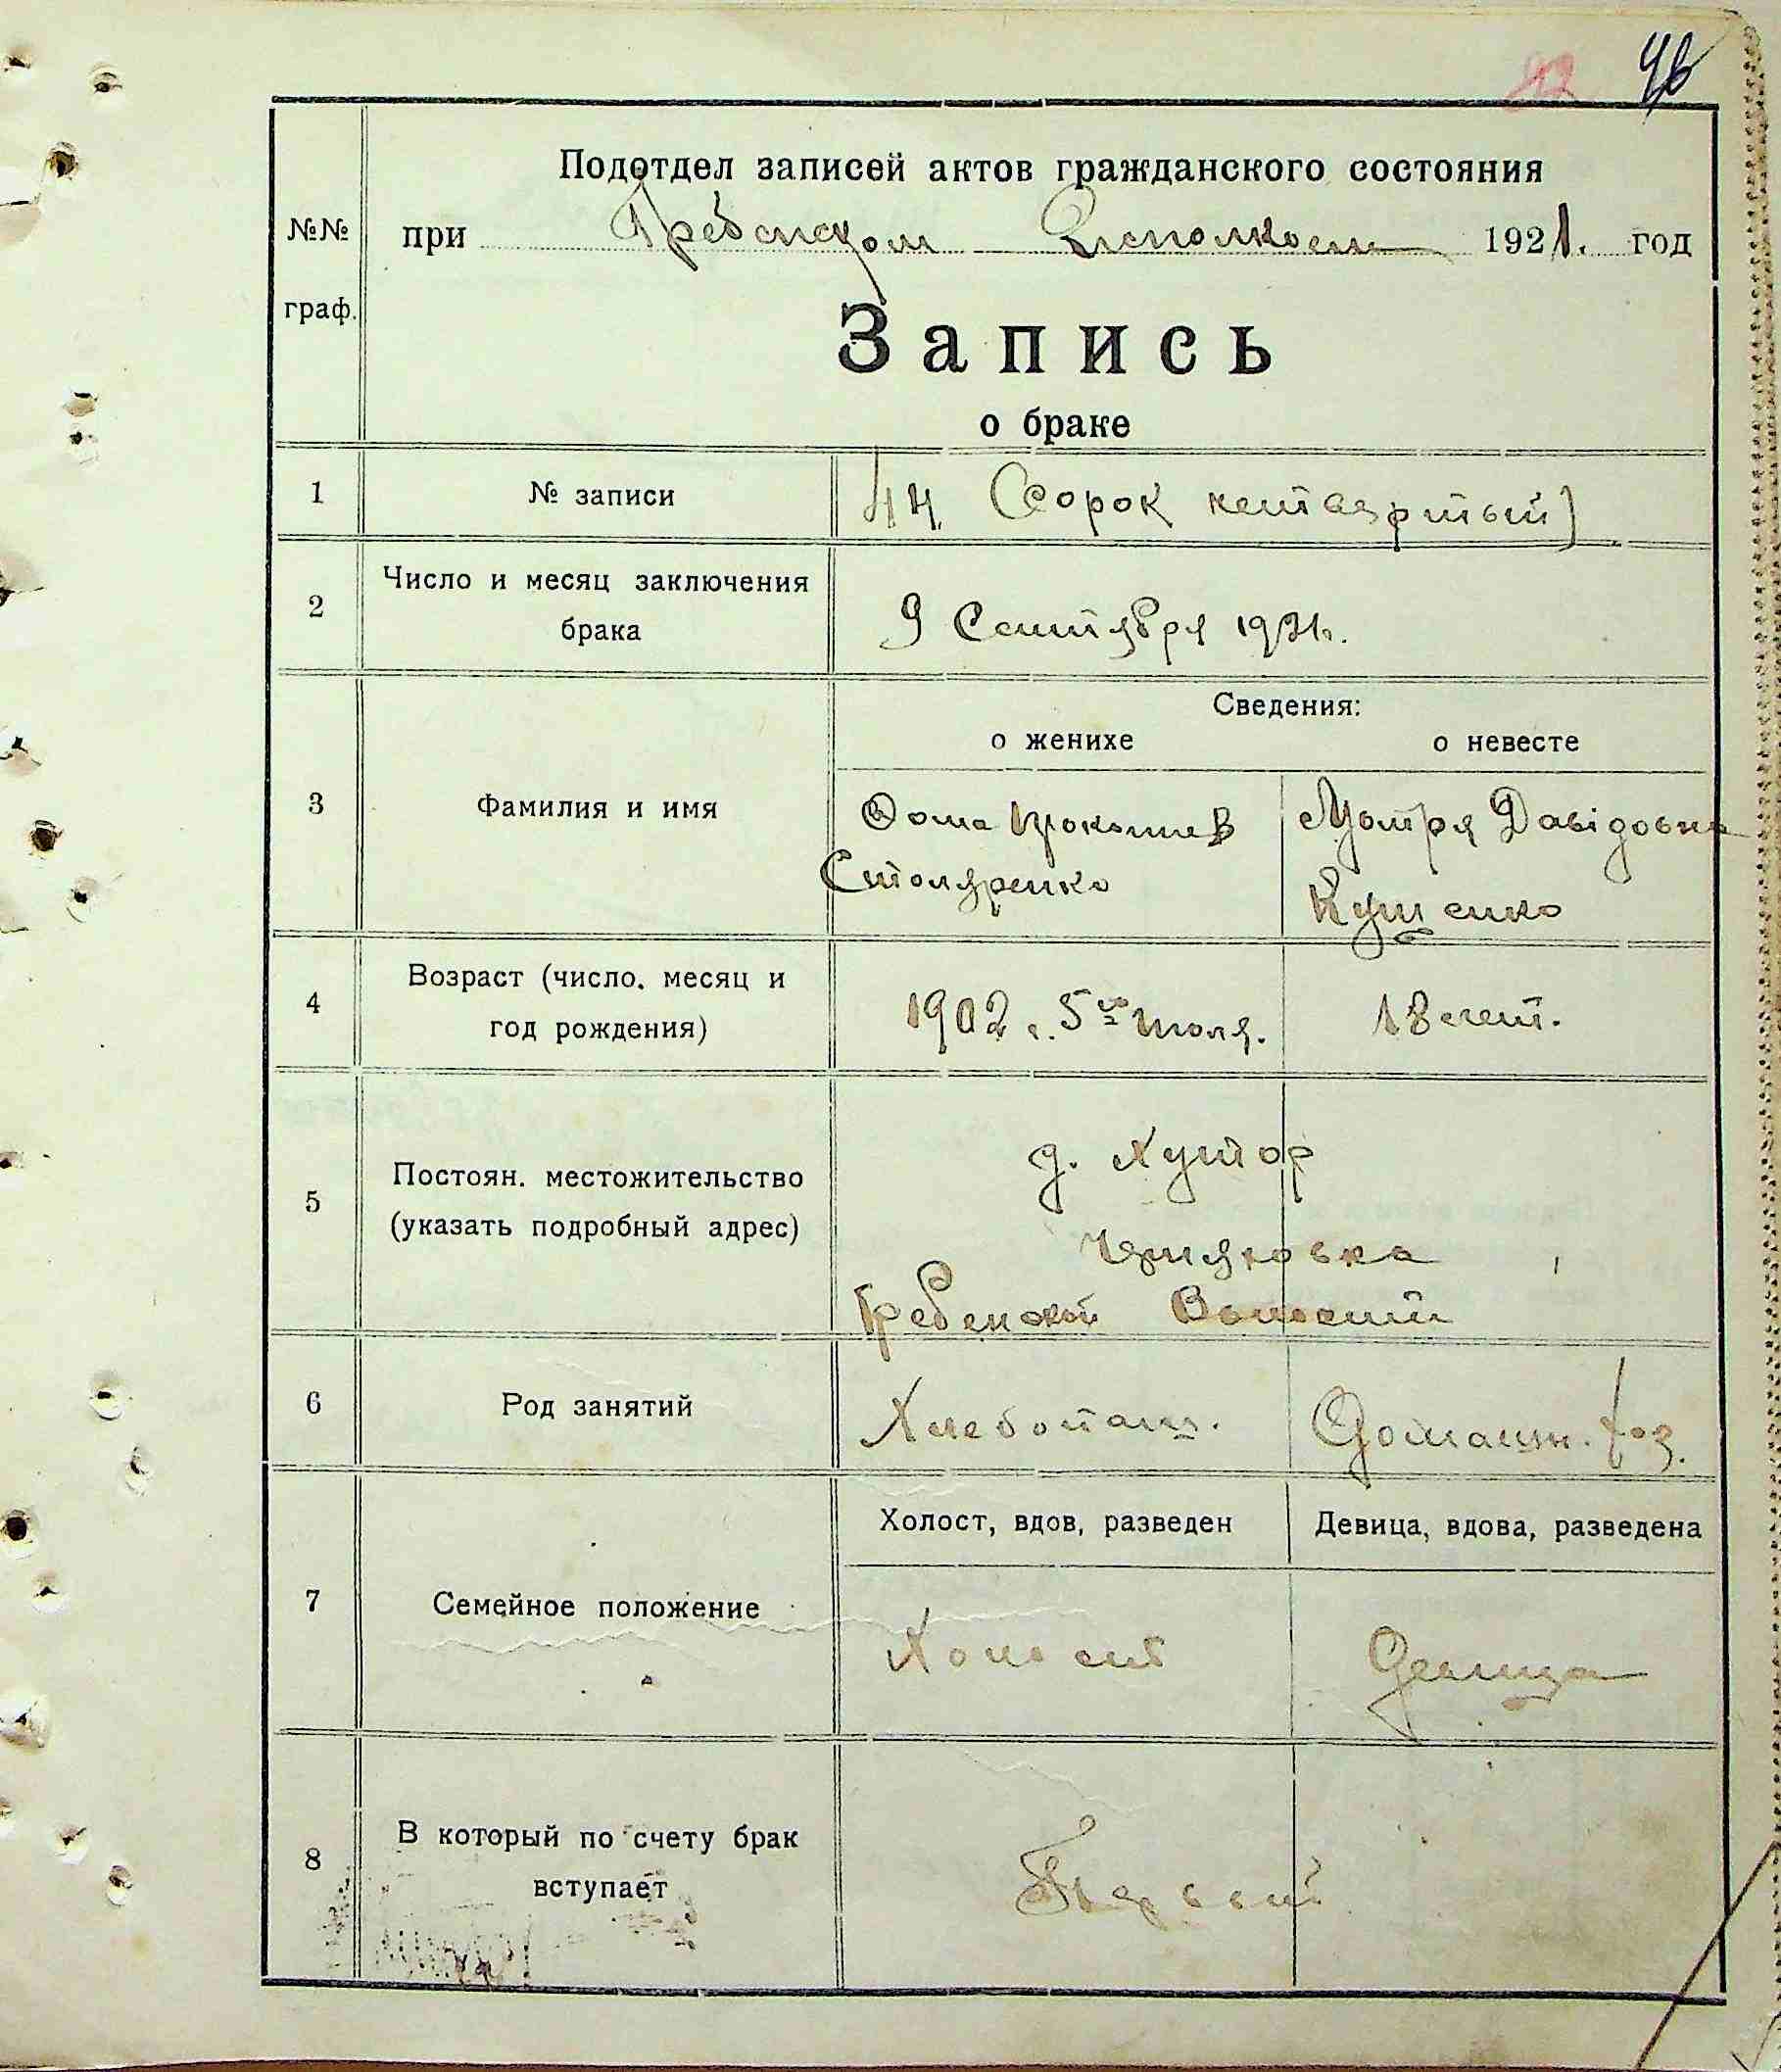 42 46
Подотдел записей актов гражданского состояния
№№ при Гребенском Исполкоме 1921. год
граф.
Запись
о браке
1 № записи 44 (Сорок четвертый)
2 Число и месяц заключения брака 9 Сентября 1921г.
Сведения:
о женихе о невесте
3 Фамилия и имя
Фома Прокопиев Мотря Давідовна
Столяренко Куценко
4 Возраст (число. месяц и год рождения) 1902 г. 5го Июля. 18 лет.
5 Постоян. местожительство (указать подробный адрес)
д. Хутор
Гребенской Волости
6 Род занятий Хлебопаш. Домашн. хоз.
Холост, вдов, разведен Девица, вдова, разведена
7 Семейное положение Холост Девица
8 В который по счету брак вступает Первый